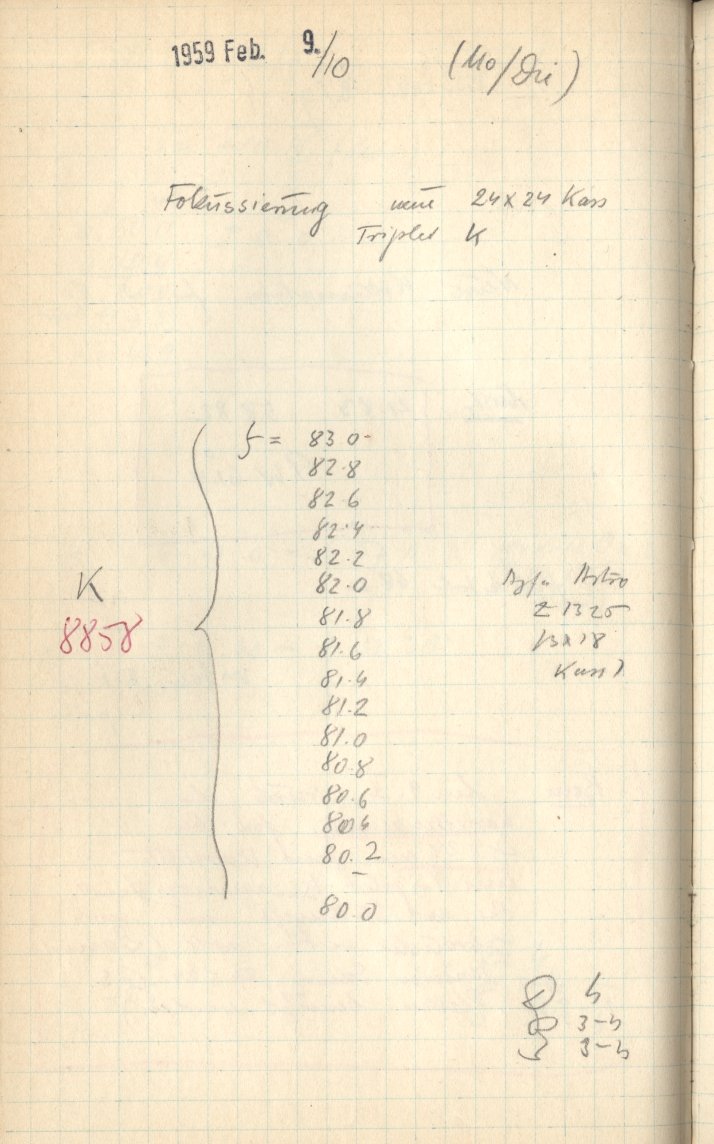 1959 Feb. 9./10 (Mo/Di)
Fokussierung neue 24x24 Kass
Triplet K
f = 83.0
82.8
82.6
82.4
82.2
82.0
81.8
81.6
81.4
81.2
81.0
80.8
80.6
80.4
80.2
–
80.0
K
8858
Agfa Astro
Z 1325
13x18
Kass
3-4
3-4